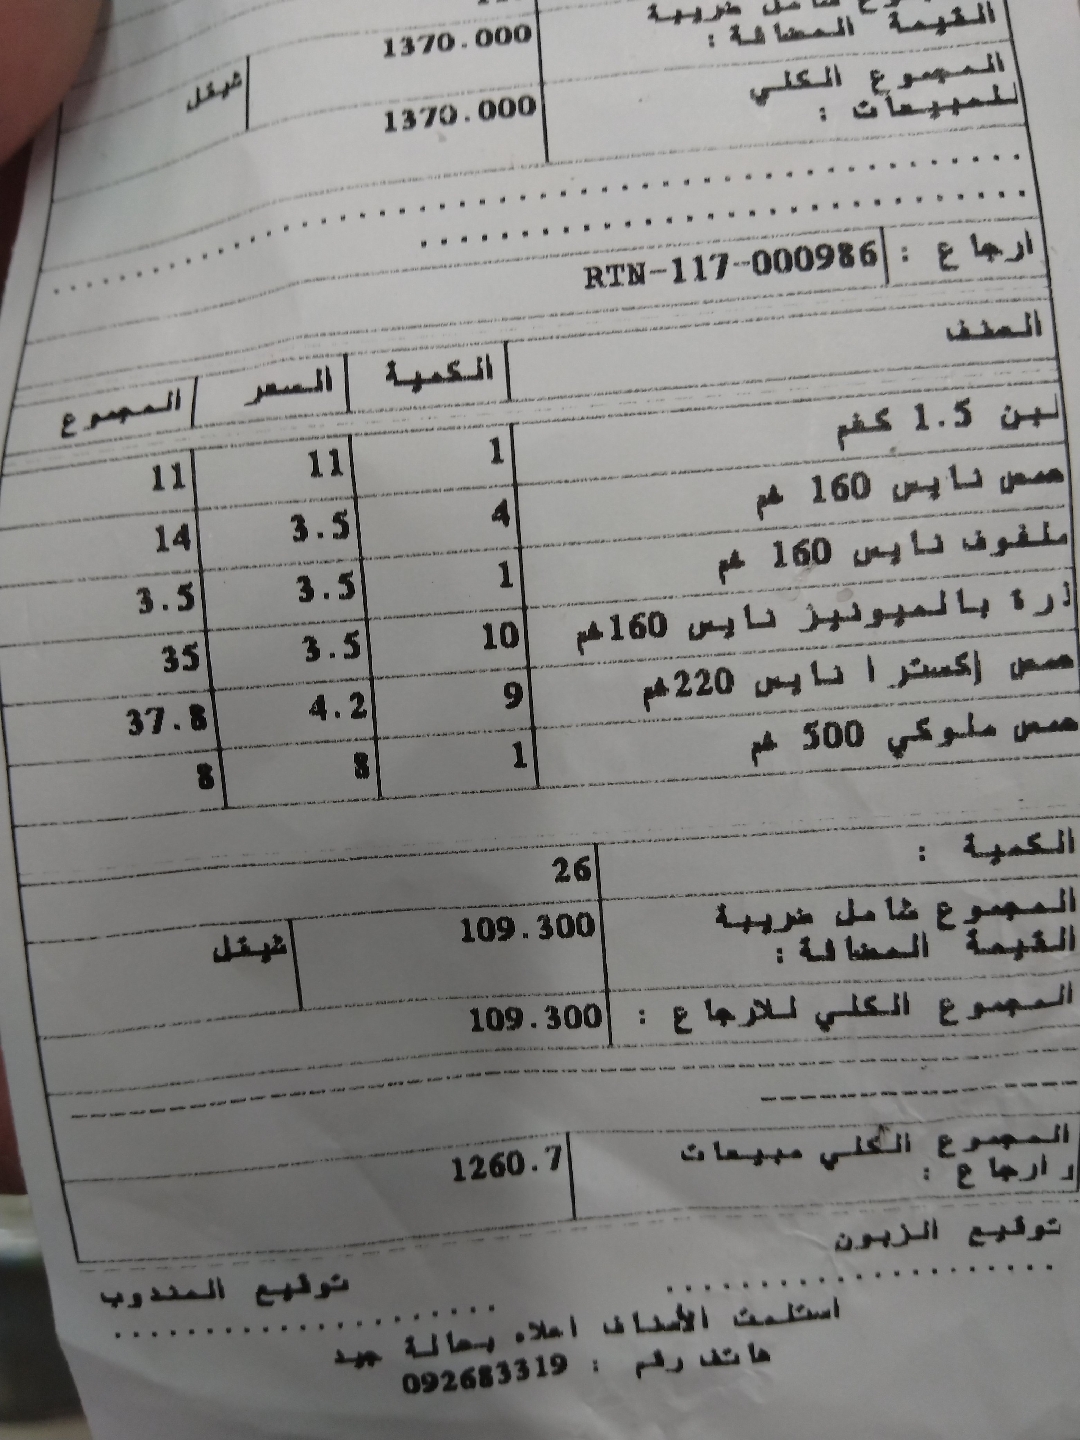 القيمة المضافة : 1370.000
المجموع الكلي
للمبيعات : 1370.000 شيقل
ارجاع : RTN-117-000986
الصنف الكمية السعر المجموع
لبن 1.5 كغم 1 11 11
حمص نايس 160 غم 4 3.5 14
ملفوف نايس 160 غم 1 3.5 3.5
ذرة بالميونيز نايس 160غم 10 3.5 35
حمص إكسترا نايس 220غم 9 4.2 37.8
حمص ملوكي 500 غم 1 8 8
الكمية : 26
المجموع شامل ضريبة
القيمة المضافة : 109.300 شيقل
المجموع الكلي للارجاع : 109.300
المجموع الكلي مبيعات
وارجاع : 1260.7
توقيع الزبون
توقيع المندوب
استلمت الأصناف اعلاه بحالة جيد
هاتف رقم : 092683319